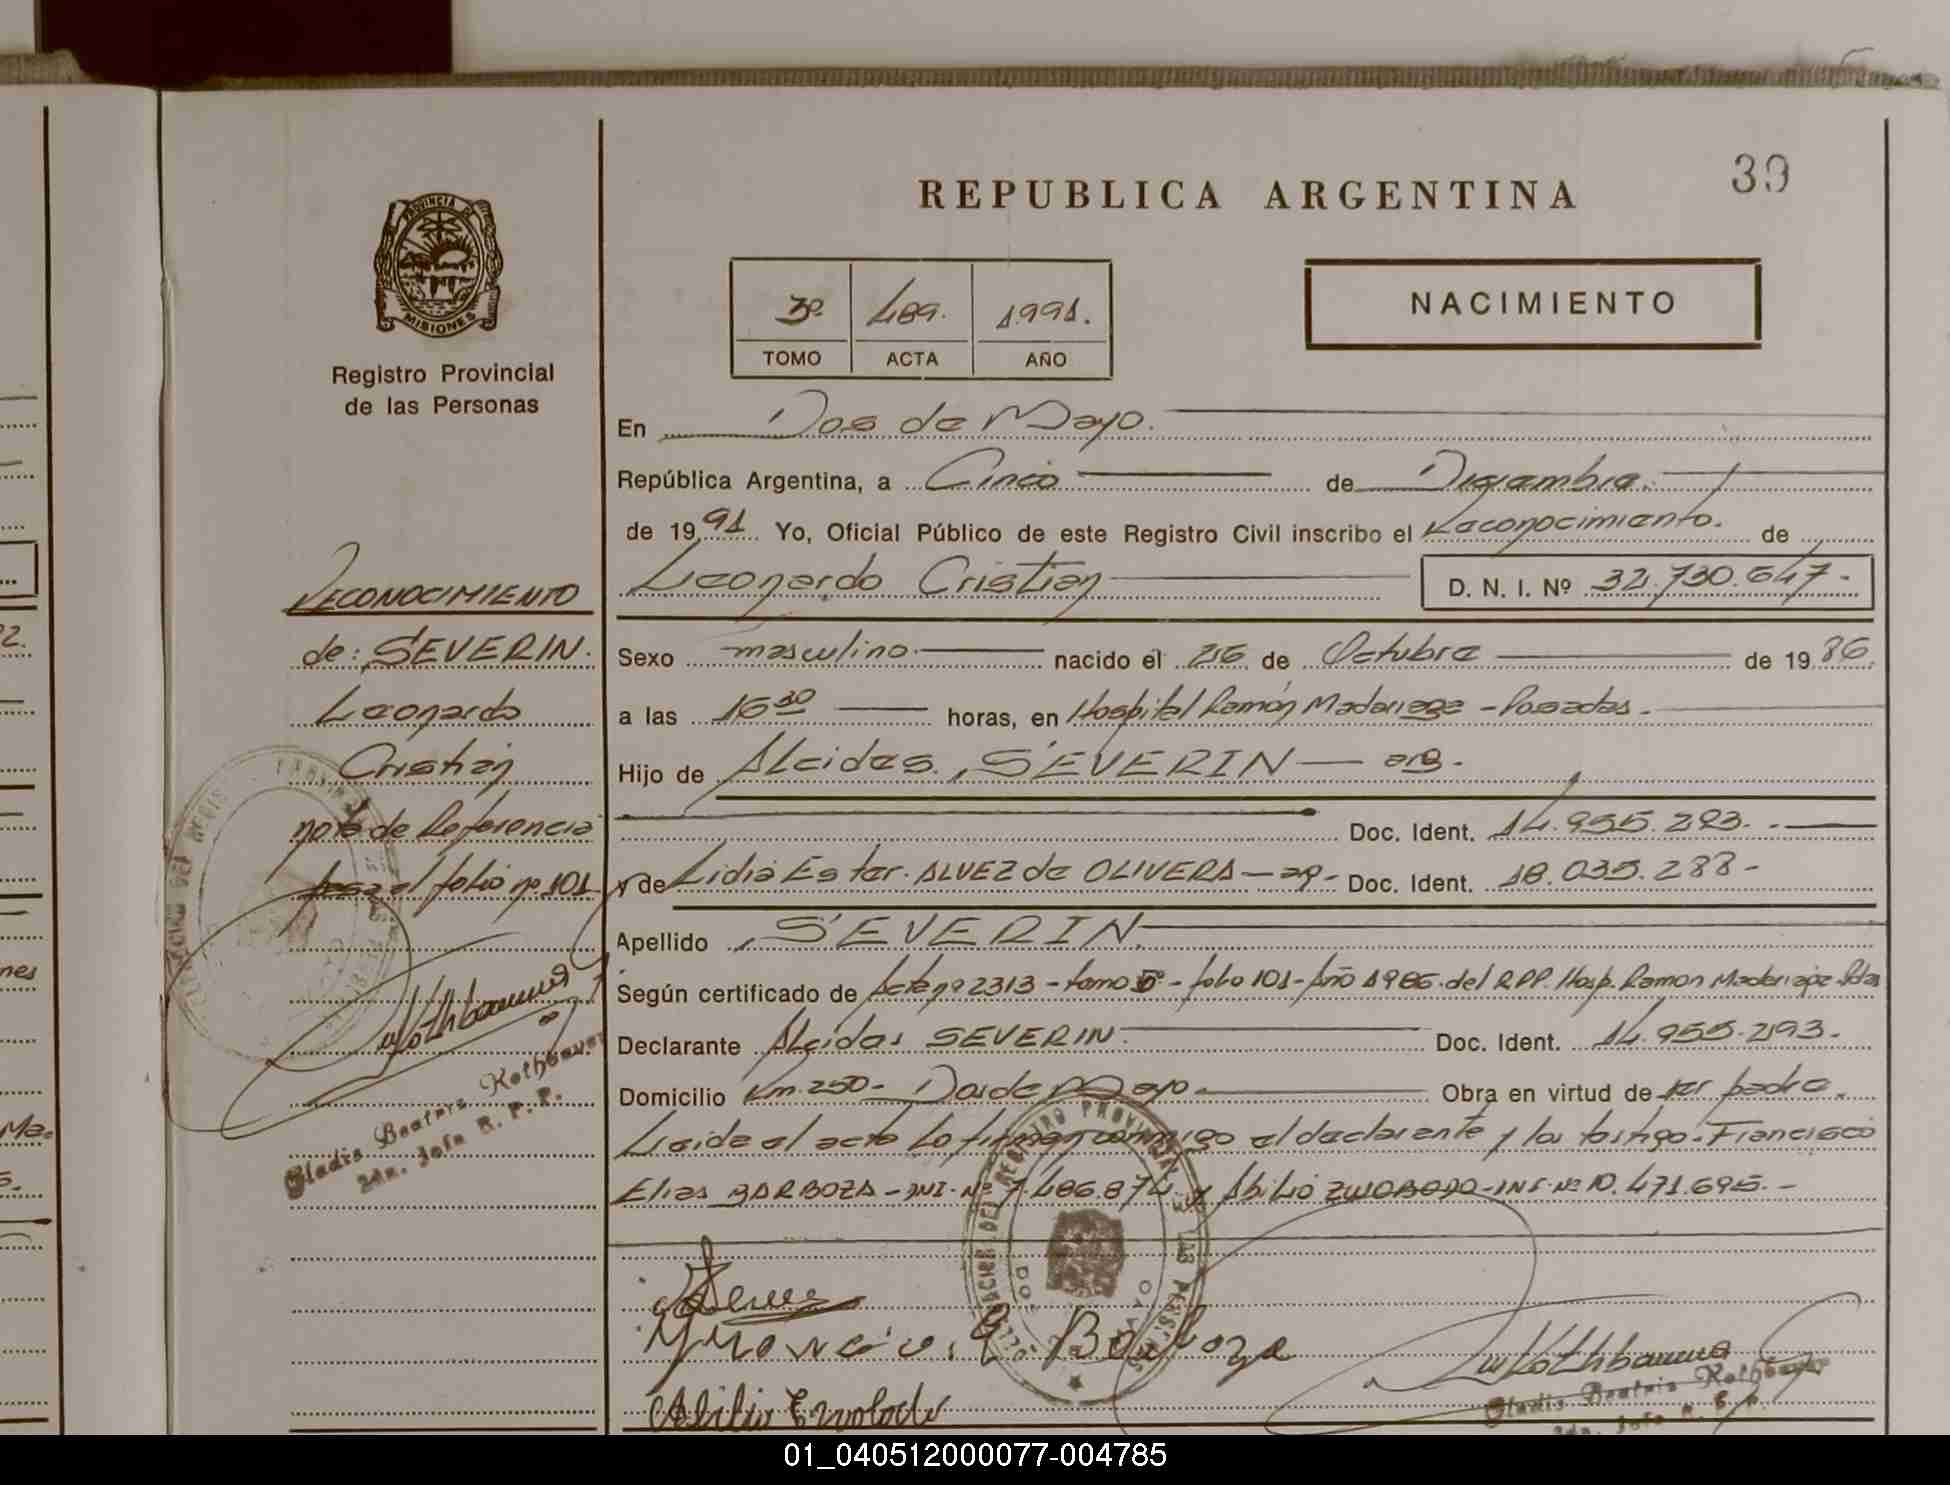 39
REPUBLICA ARGENTINA
PROVINCIA DE
MISIONES
Registro Provincial
de las Personas
3º 489. 1991.
TOMO ACTA AÑO
NACIMIENTO
En Dos de Mayo.
República Argentina, a Cinco de Diciembre.
de 1991. Yo, Oficial Público de este Registro Civil inscribo el Reconocimiento. de
Leonardo Cristian D. N. I. Nº 32.730.647-
Sexo masculino nacido el 26 de Octubre de 1986
a las 16 30 horas, en Hospital Ramón Madariaga - Posadas.
Hijo de Alcides, SEVERIN — arg.
Doc. Ident. 14.955.293.
y de Lidia Ester. ALVEZ de OLIVERA — ag- Doc. Ident. 18.035.288-
Apellido SEVERIN
Según certificado de Acta nº 2313 - tomo 5º - folio 101 - Año 1986. del RPP. Hosp. Ramon Madariaga
Declarante Alcides SEVERIN Doc. Ident. 14.955.293.
Domicilio Km. 250- Dos de Mayo Obra en virtud de ser padre.
Leida el acta La firman conmigo el declarante y los testigo. Francisco
Elias BARBOZA - Nº 7.486.874 y Abilio Nº 10.471.695.-
RECONOCIMIENTO
de: SEVERIN.
Leonardo
Cristian
nota de Referencia
folio nº 101
Gladis Beatriz Rothbauer
2da. Jefa R. P. P.
Francisco. E. Barboza
Abilio
Gladis Beatriz Rothbauer
2da. Jefa R. P. P.
01_040512000077-004785